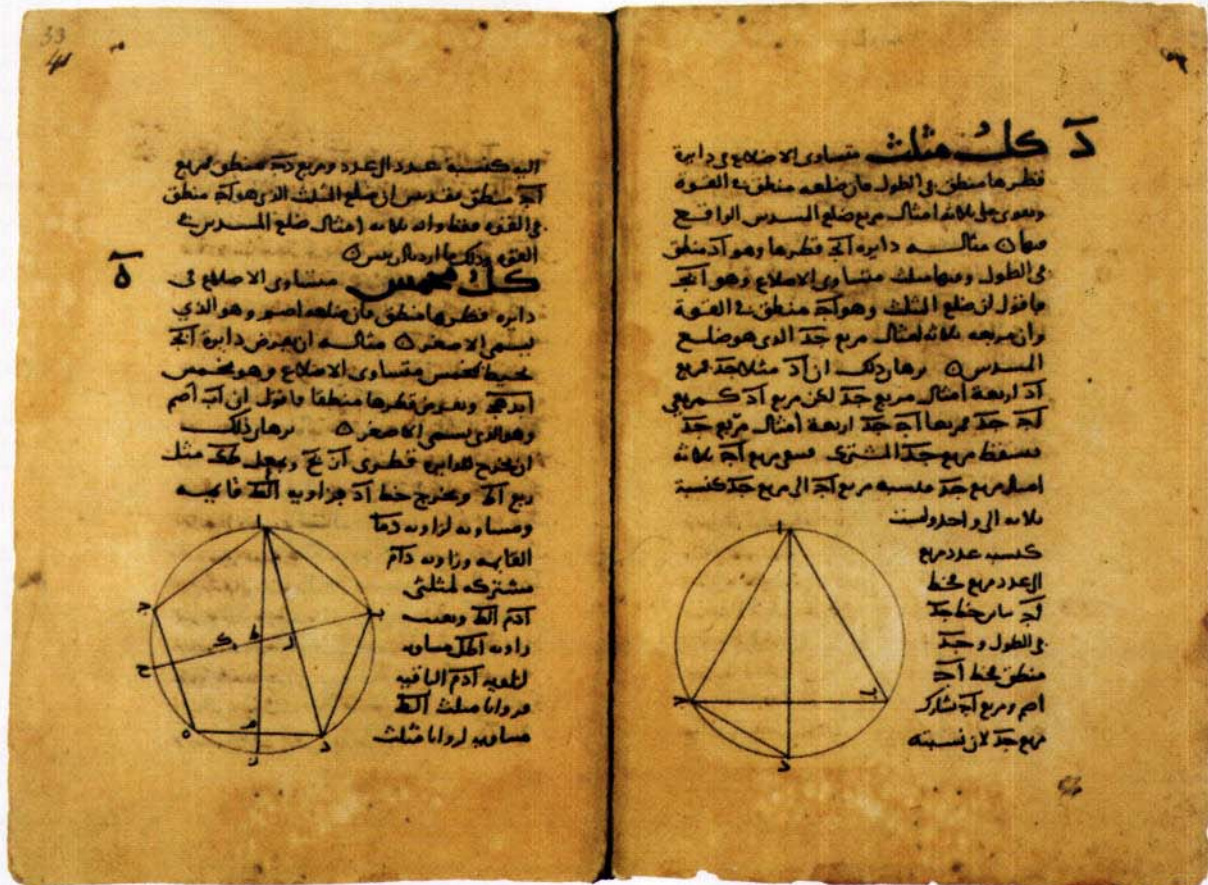 د كل مثلث متساوى الاضلاع فى دايرة
قطرها منطق فى الطول فان ضلعه منطق فى القوة
ويقوى على ثلاثة امثال مربع ضلع المسدس الواقع
فيها مثاله دايرة ابج قطرها وهو اد منطق
فى الطول وفيها مثلث متساوى الاضلاع وهو ابج
فاقول ان ضلع المثلث وهو اج منطق فى القوة
وان مربعه ثلاثة امثال مربع جد الذى هو ضلع
المسدس برهان ذلك ان اد مثلا جد فمربع
اد اربعة امثال مربع جد لكن مربع اد كمربعى
اج جد فمربعا اج جد اربعة امثال مربع جد
فنسقط مربع جد المشترك فيبقى مربع اج ثلاثة
امثال مربع جد فنسبة مربع اج الى مربع جد كنسبة
ثلاثة الى واحد وليست
كنسبة عدد مربع
الى عدد مربع فخط
اج يباين خط جد
فى الطول و جد
منطق فخط اج
اصم ومربع اج يشارك
مربع جد لان نسبته
33
اليه كنسبة عدد الى عدد ومربع دج منطق فمربع
اج منطق فقد تبين ان ضلع المثلث الذى هو اج منطق
فى القوة فقط وانه ثلاثة امثال ضلع المسدس فى
القوة وذلك ما اردنا ان نبين
ه كل مخمس متساوى الاضلاع فى
دايرة قطرها منطق فان ضلعه اصم وهو الذي
يسمى الاصغر مثاله ان نفرض دايرة ابج
تحيط بمخمس متساوى الاضلاع وهو مخمس
ابدهج ونفرض قطرها منطقا فاقول ان اب اصم
وهو الذى يسمى الاصغر برهان ذلك
ان نخرج للدايرة قطرى ان بح ونجعل طك مثل
ربع اط ونخرج خط اد فزاوية الط قايمة
ومساوية لزاوية دما
القايمة وزاوية دام
مشتركة لمثلثى
ادم الط وبقيت
زاوية اطل مساوية
لزاوية ادم الباقية
فزوايا مثلث الط
مساوية لزوايا مثلث
ا
ب
ج
د
ا
ب
ج
د
ه
ح
ك
ط
ل
م
ن